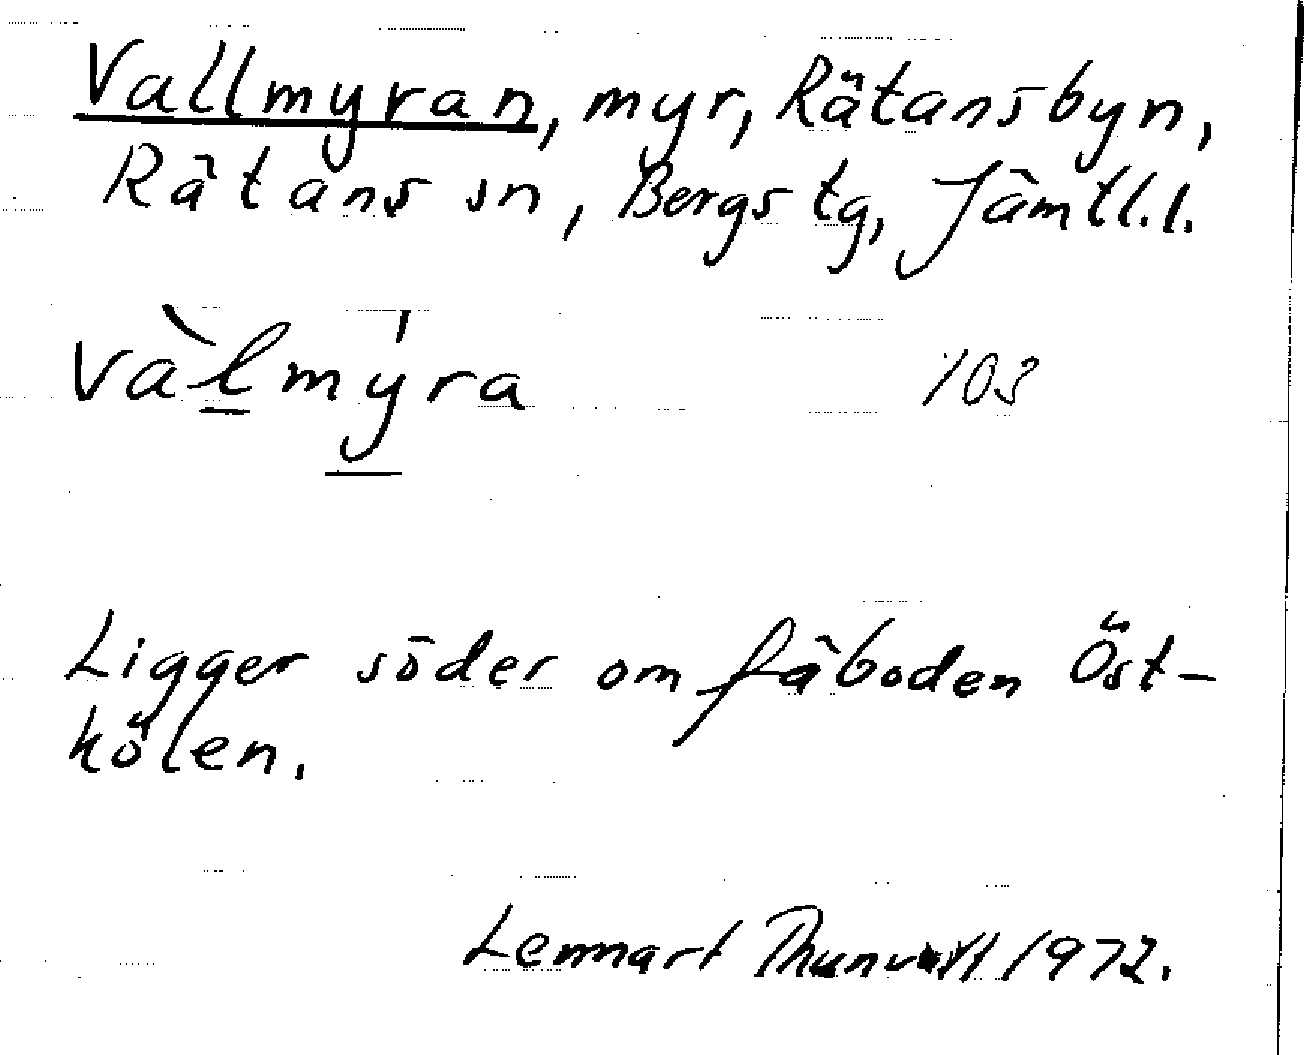 Vallmyran, myr, Rätansbyn,
Rätans sn, Bergs tg, Jämtl.l.
vàlmýra 103
Ligger söder om fäboden Öst-
kölen.
Lennart Thunvall 1972.